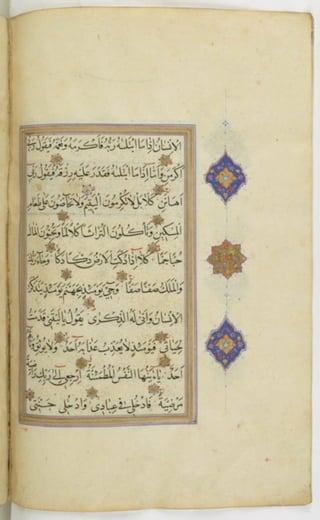 الانسان اذا ما ابتلىه ربه فاكرمه ونعمه فيقول ربى
اكرمن واما اذا ما ابتلىه فقدر عليه رزقه فيقول ربى
اهانن كلا بل لا تكرمون اليتيم ولا تحاضون على طعام
المسكين وتاكلون التراث اكلا لما وتحبون المال
حبا جما كلا اذا دكت الارض دكا دكا وجاء ربك
والملك صفا صفا وجىء يومئذ بجهنم يومئذ يتذكر
الانسان وانى له الذكرى يقول يا ليتنى قدمت
لحياتى فيومئذ لا يعذب عذابه احد ولا يوثق وثاقه
احد يا ايتها النفس المطمئنة ارجعى الى ربك راضية
مرضية فادخلى فى عبادى وادخلى جنتى